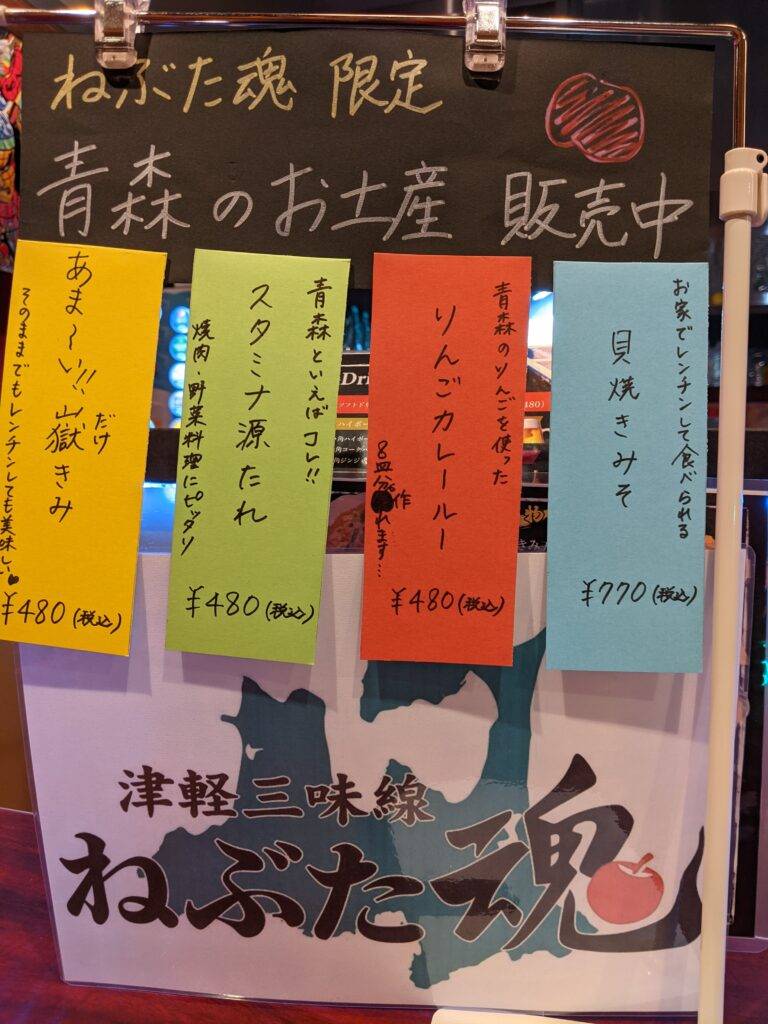 ねぶた魂 限定
青森のお土産 販売中
お家でレンチンして食べられる
貝焼きみそ
¥770(税込)
青森のりんごを使った
りんごカレールー
8皿分作れます…
¥480(税込)
青森といえばコレ!!
スタミナ源たれ
焼肉・野菜料理にピッタリ
¥480(税込)
あま〜い!!だけ
嶽きみ
そのままでもレンチンしても美味しい
¥480(税込)
Dri
480)
津軽三味線
ねぶた魂